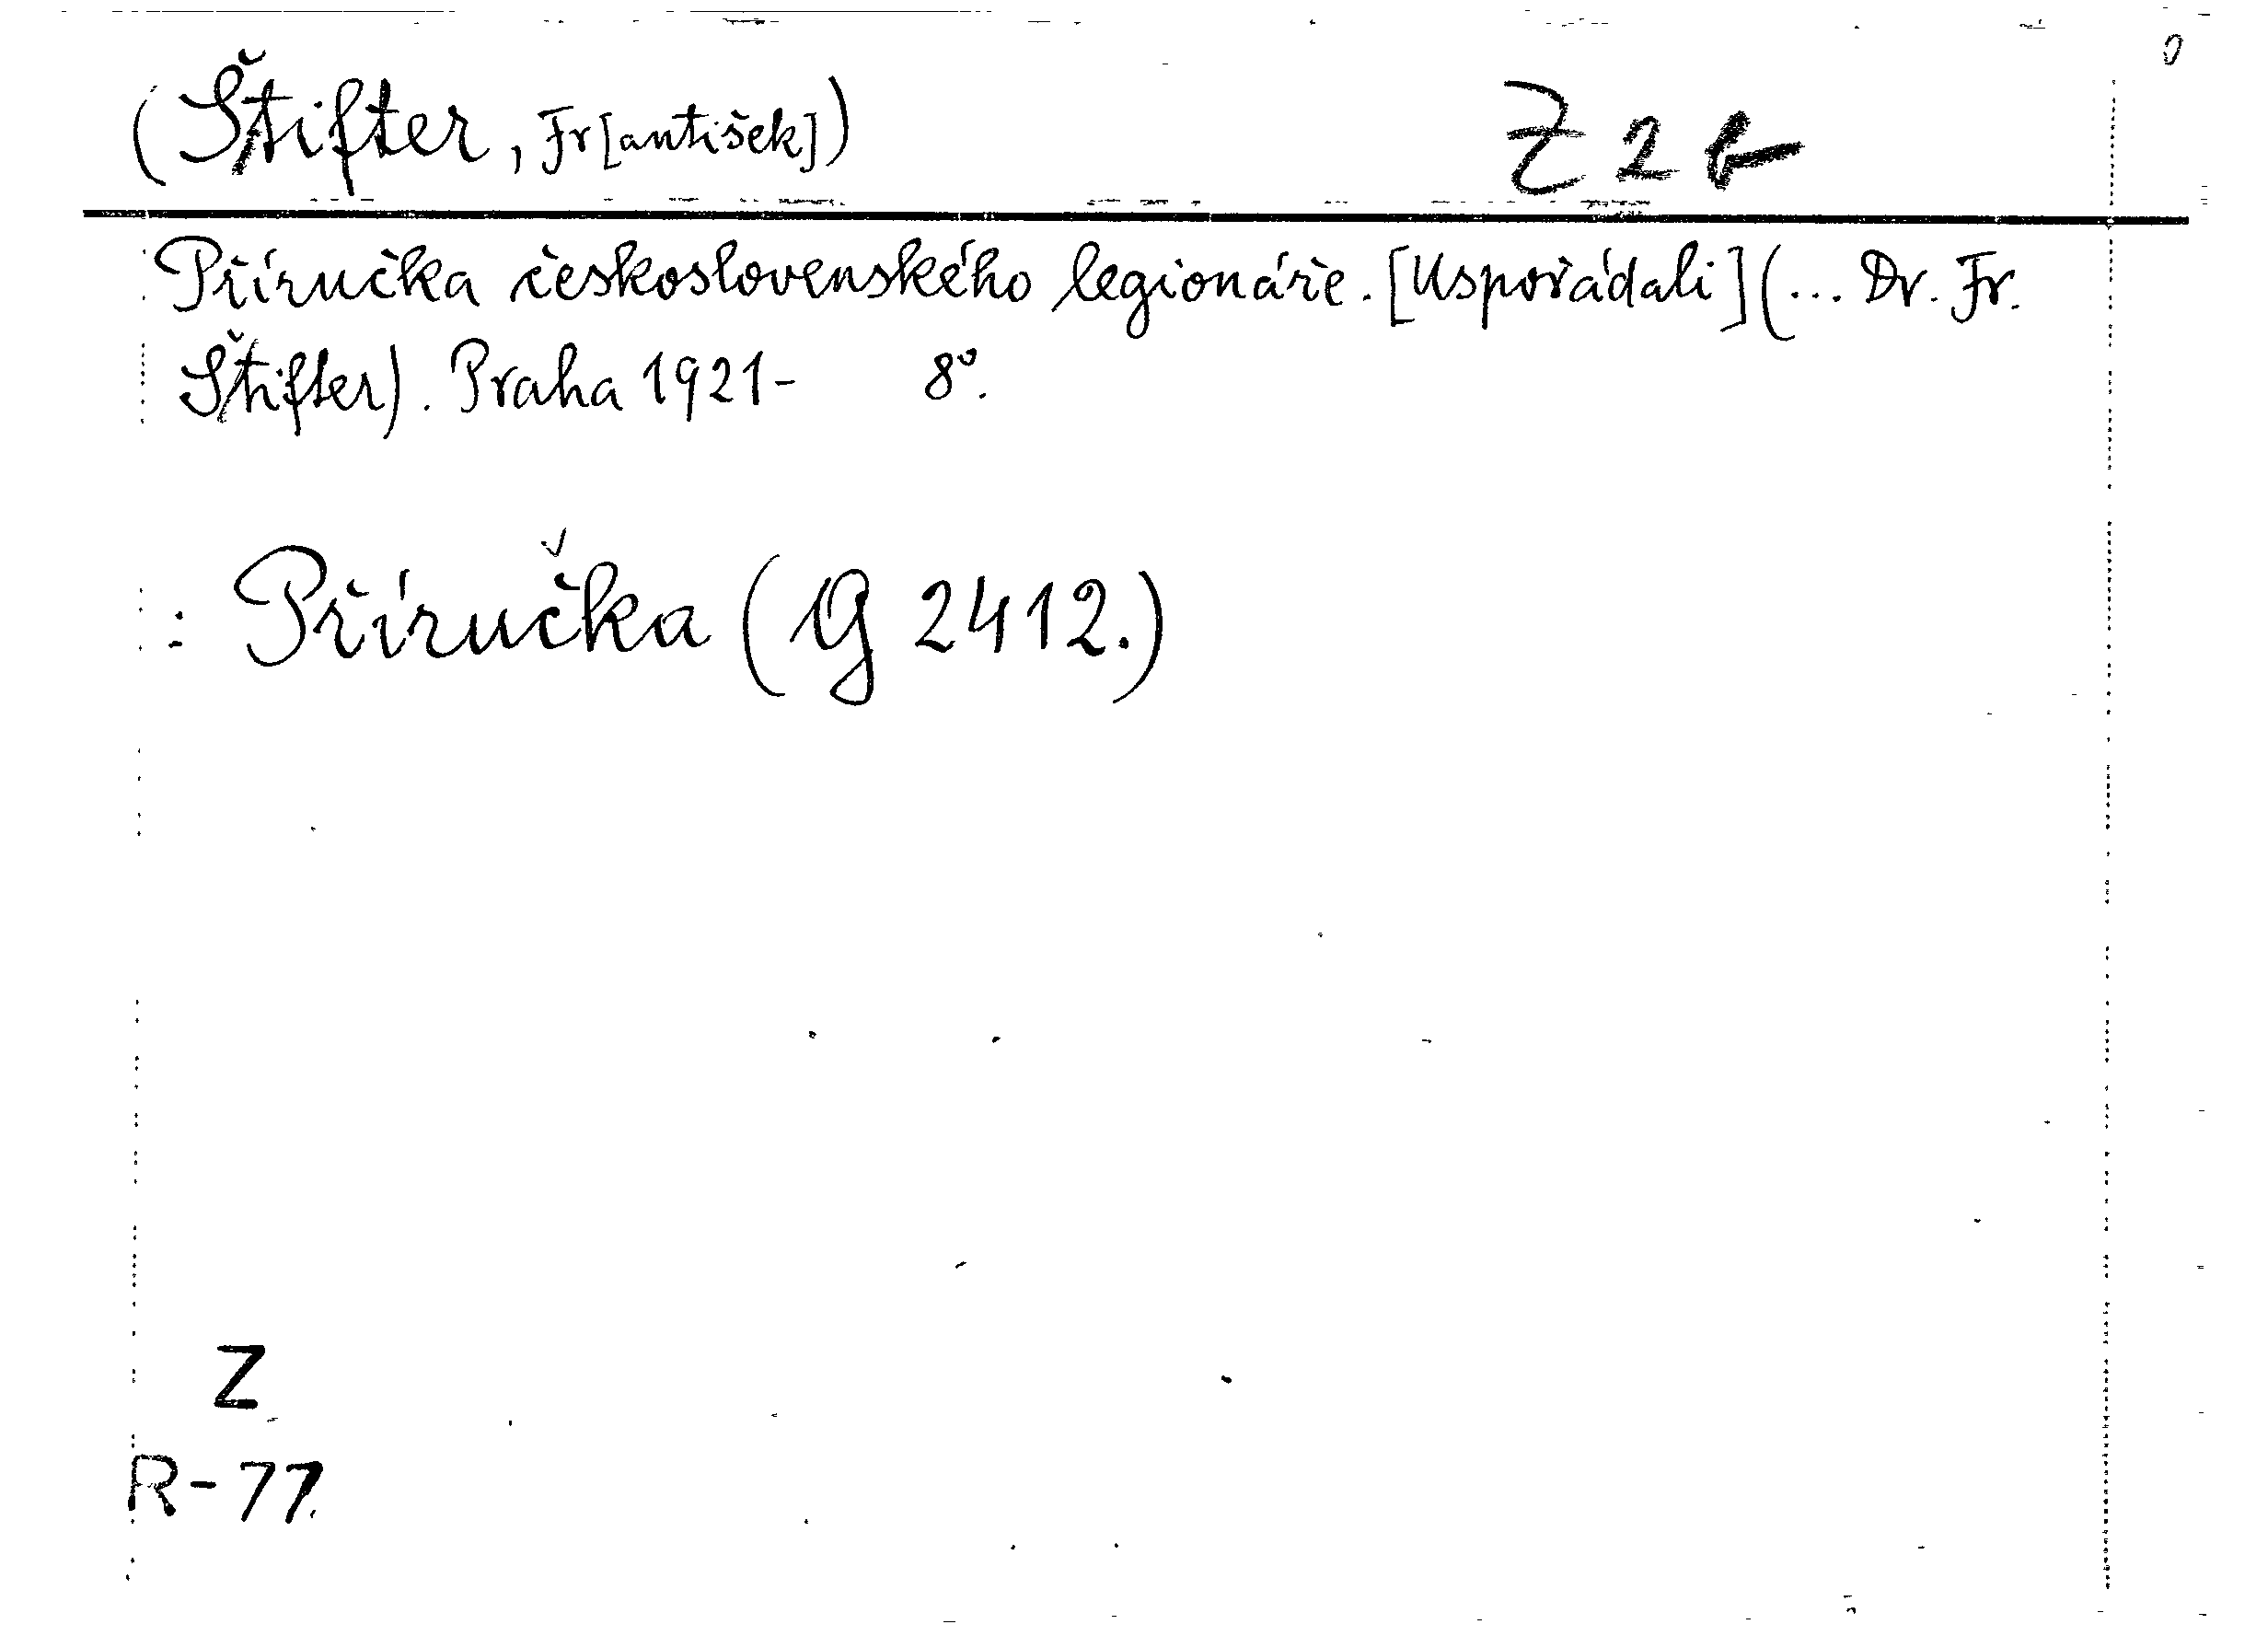 (Štifter, Fr[antišek]) Z 2 b
Příručka československého legionáře. [Uspořádali] (... Dr. Fr.
Štifter). Praha 1921- 8°.
: Příručka (G 2412.)
Z
R-77